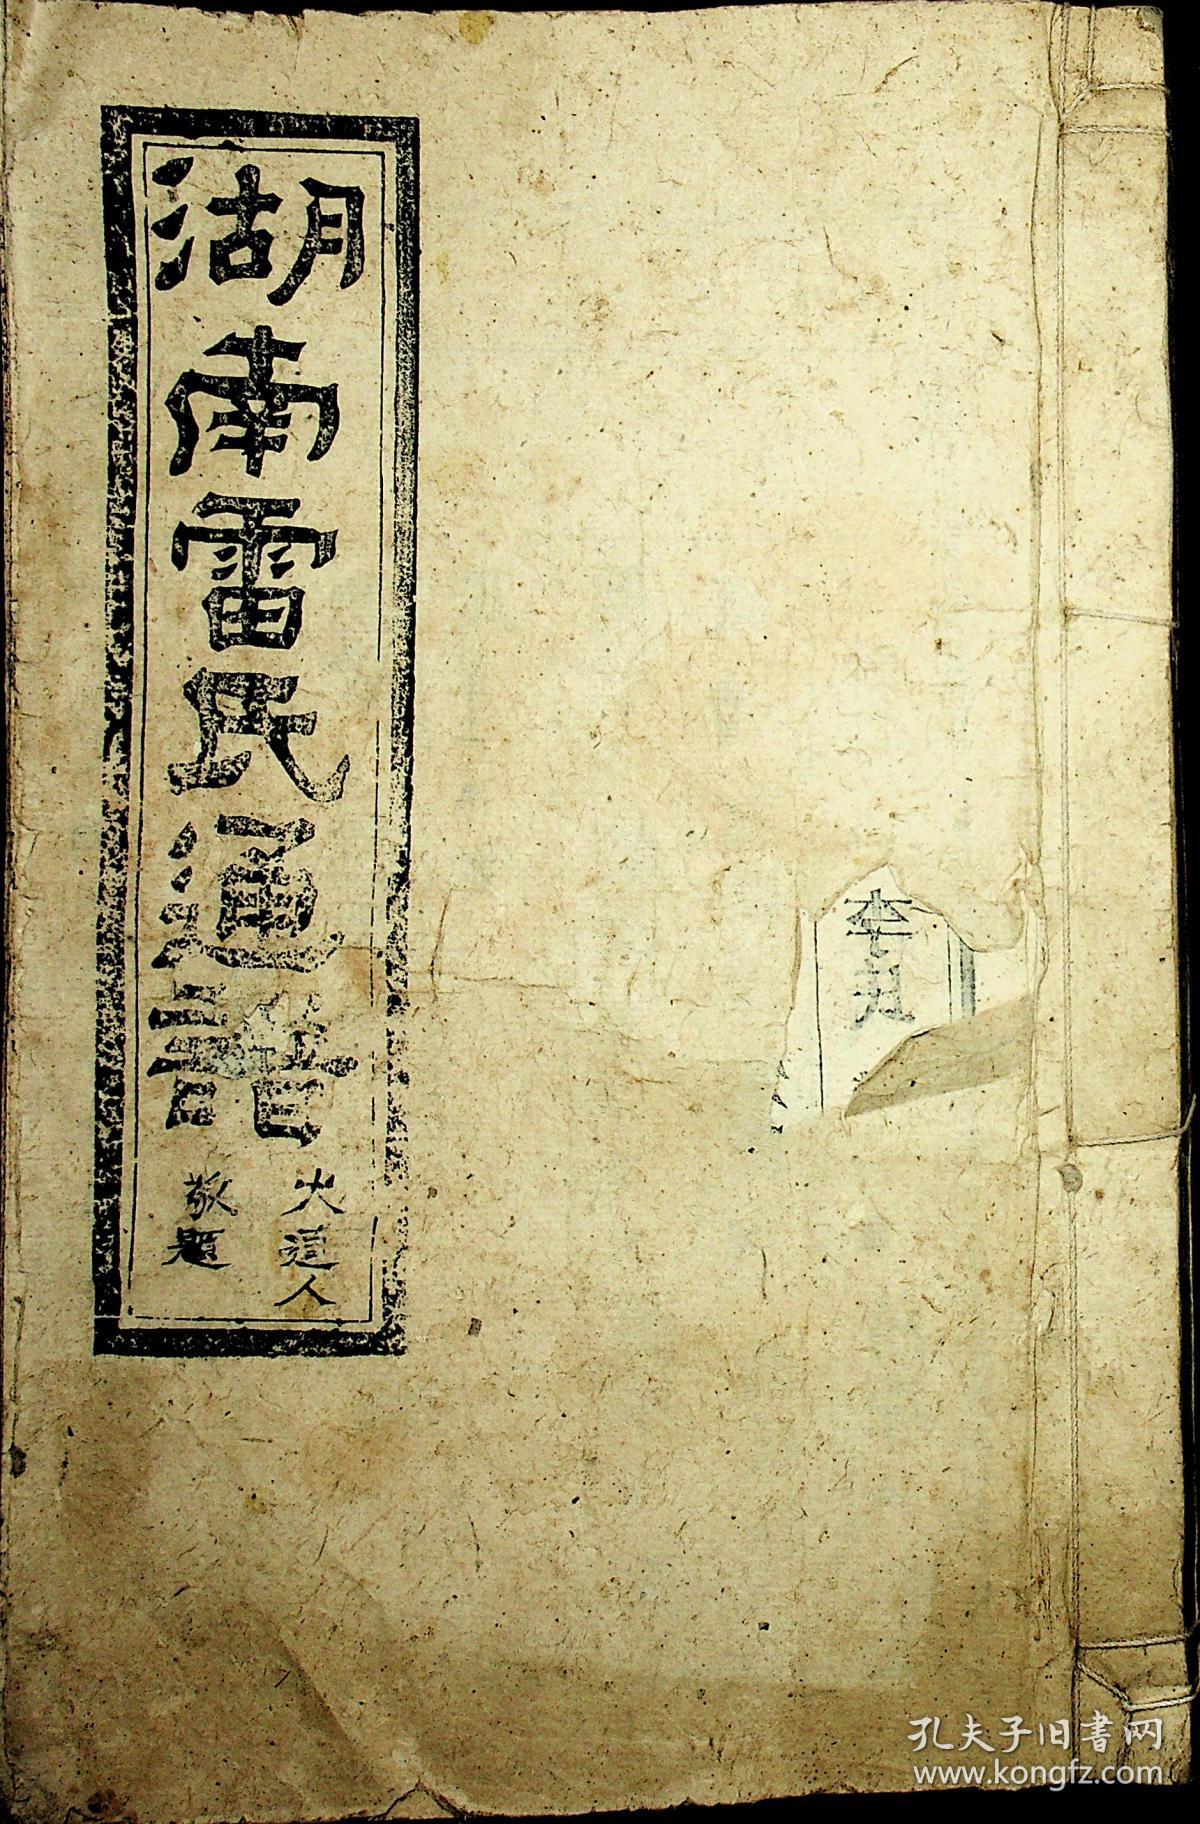 湖南雷氏通譜
火道人
敬題
李
孔夫子旧書网
www.kongfz.com